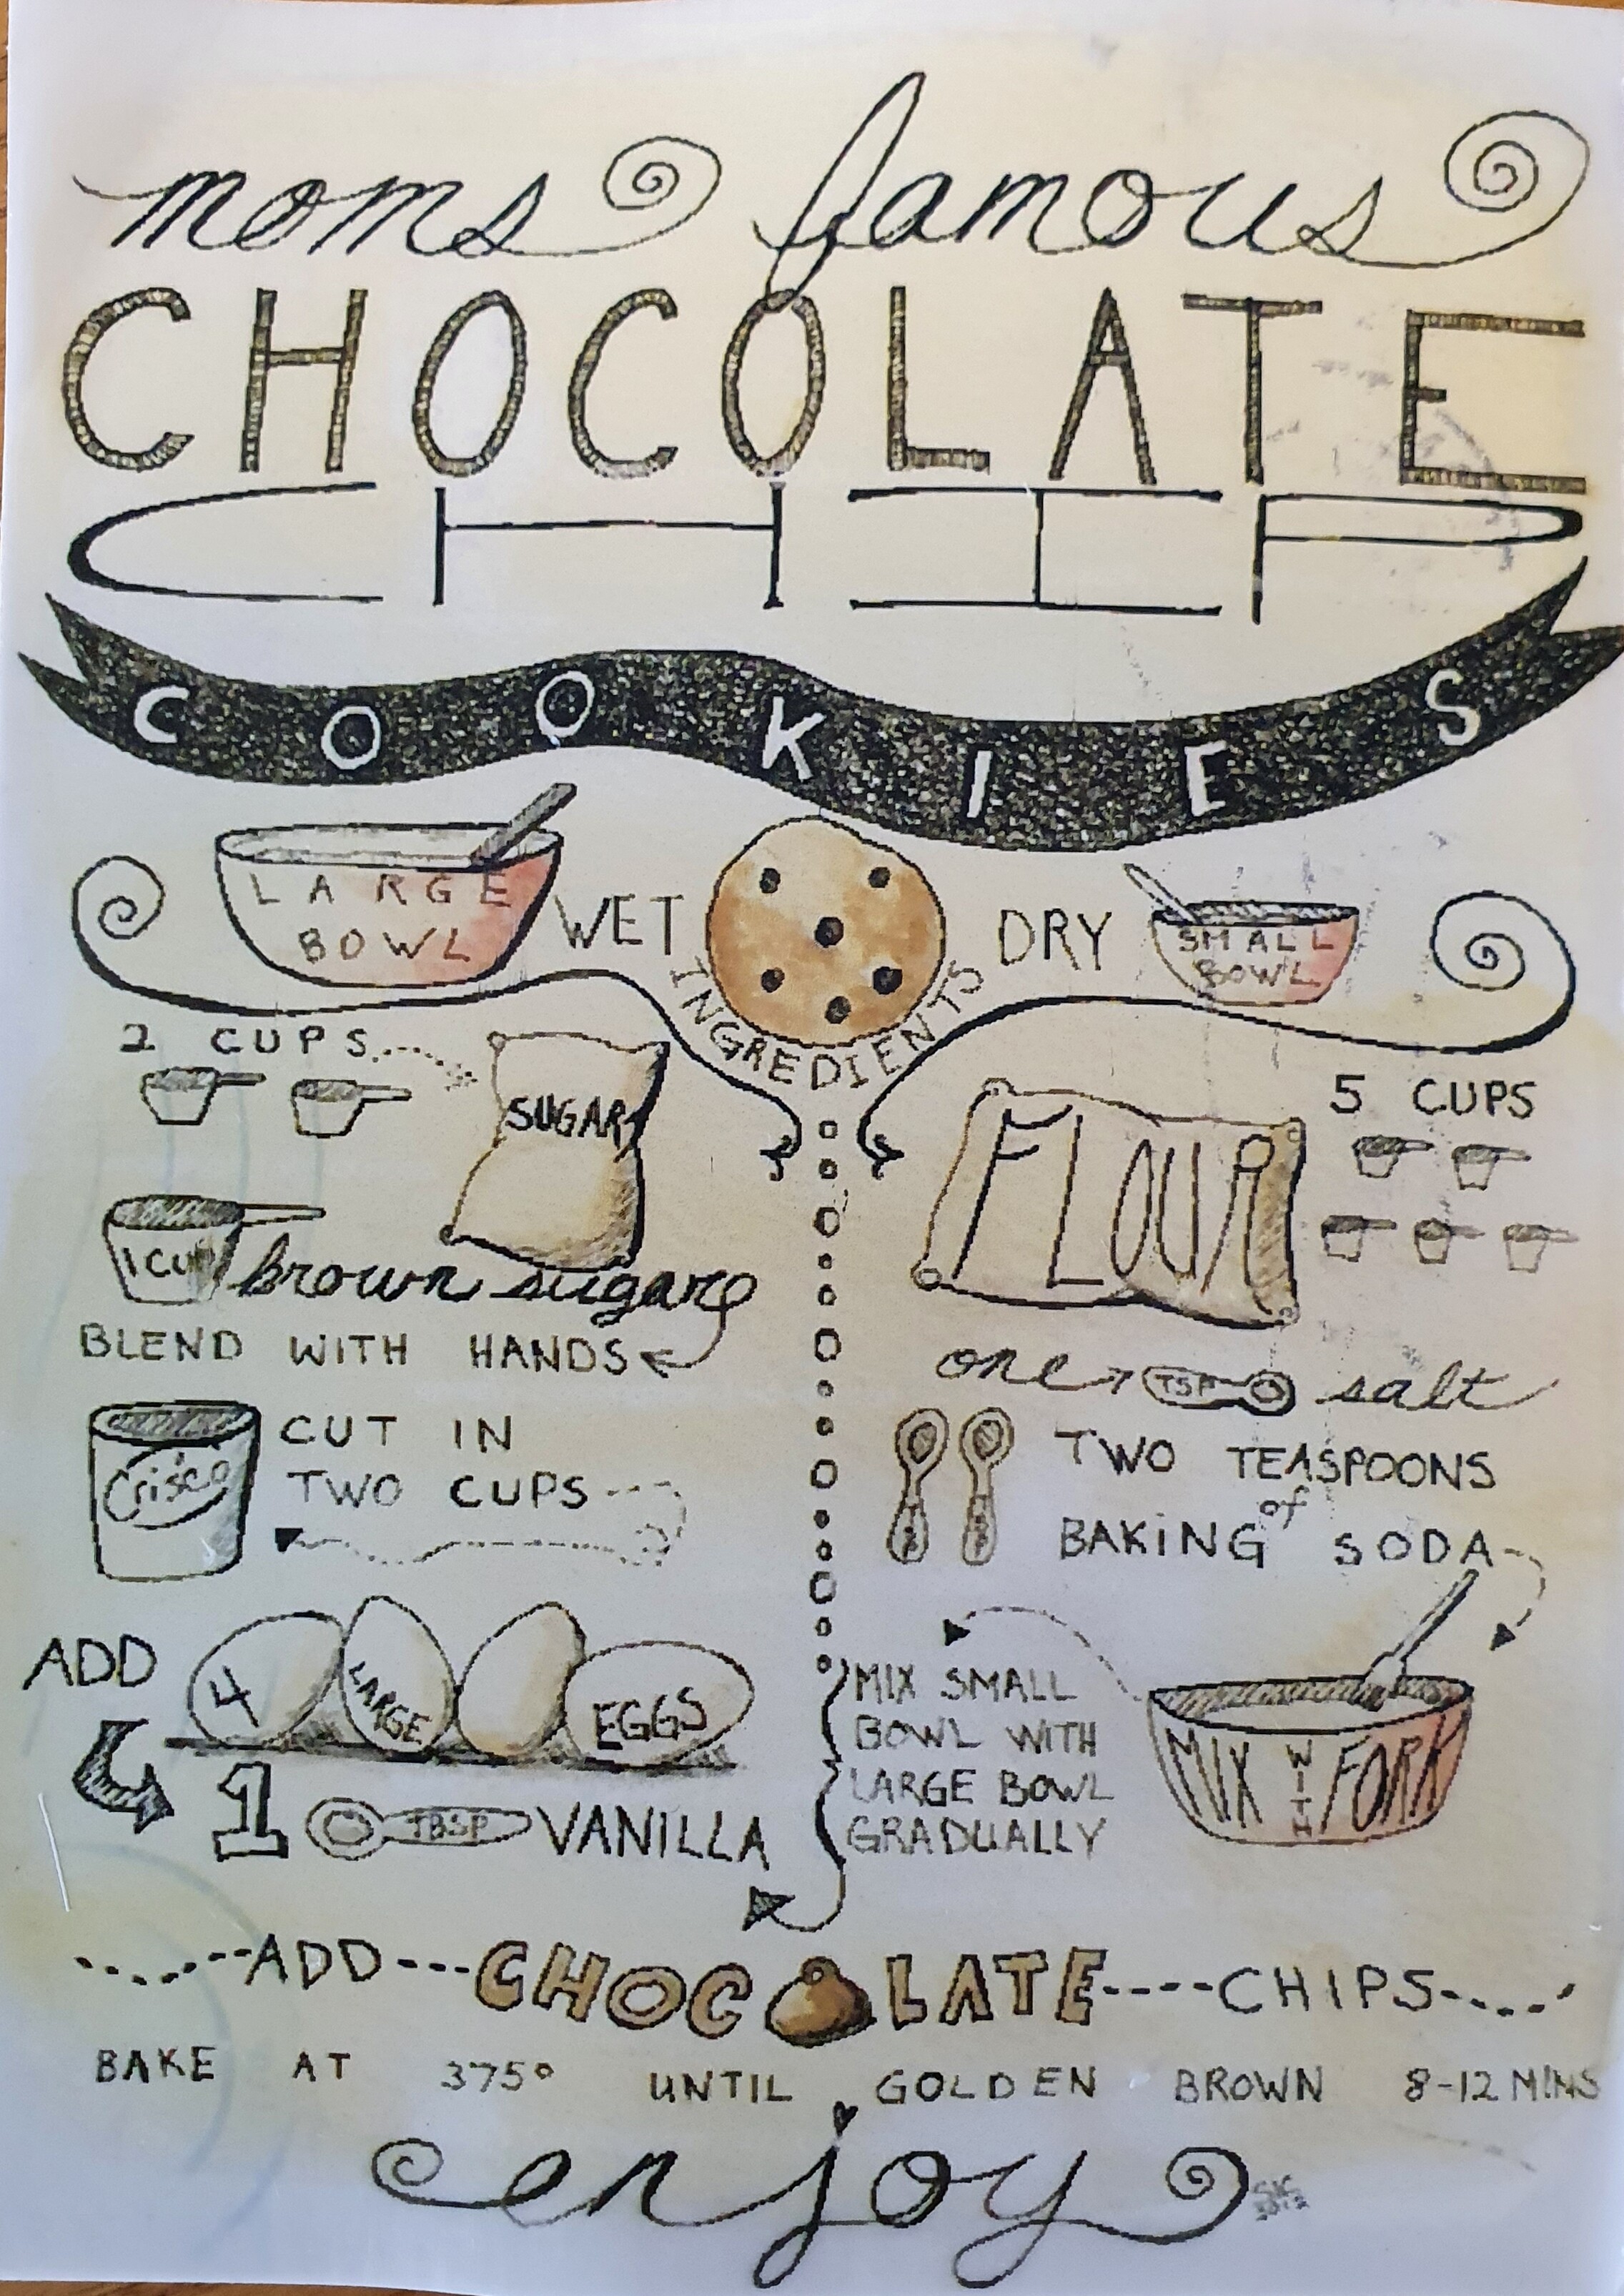 moms famous
CHOCOLATE
CHIP
COOKIES
LARGE
BOWL
WET
DRY
SMALL
BOWL
INGREDIENTS
2 CUPS
SUGAR
1 CUP brown sugar
BLEND WITH HANDS
Crisco
CUT IN
TWO CUPS
ADD
4 LARGE EGGS
1 TBSP VANILLA
FLOUR
5 CUPS
one TSP salt
TWO TEASPOONS
of
BAKING SODA
MIX SMALL
BOWL WITH
LARGE BOWL
GRADUALLY
MIX WITH FORK
ADD CHOCOLATE CHIPS
BAKE AT 375° UNTIL GOLDEN BROWN 8-12 MINS
enjoy